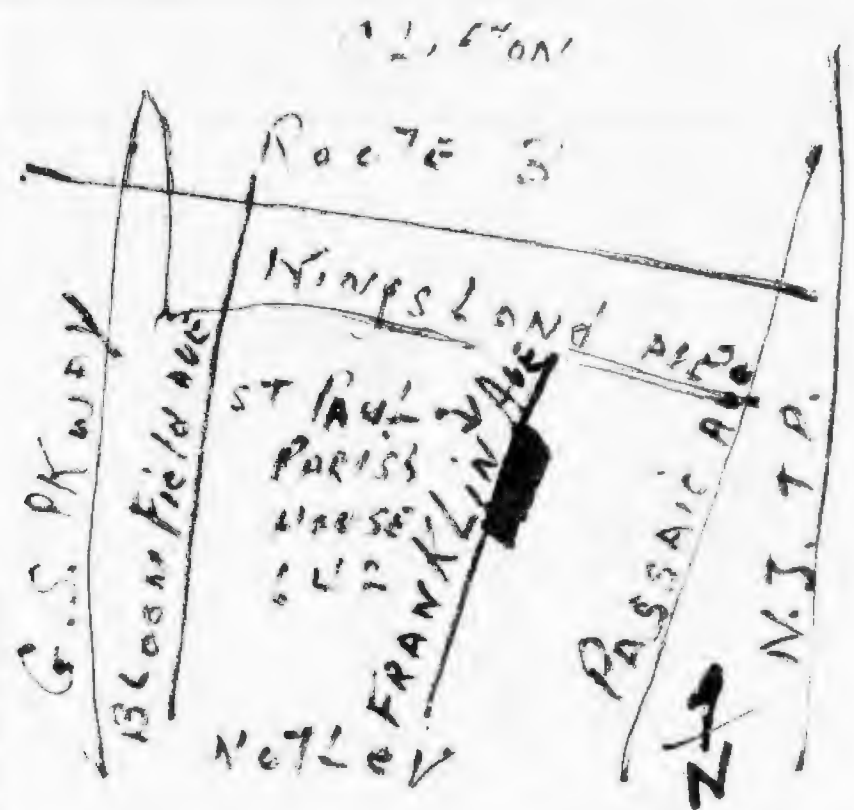 Route 3
Kingsland Ave
G.S. PKWAY
Bloomfield Ave
ST PAUL
PARISH
FRANKLIN AVE
PASSAIC A
N.J. T P.
NUTLEY
N